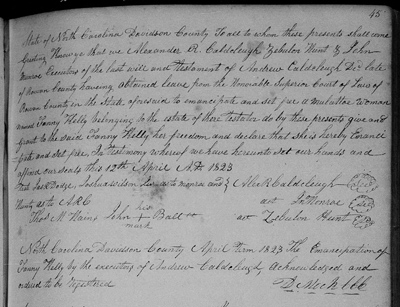 45
State of North Carolina Davidson County To all to whom these presents shall come
Greeting Know ye that we Alexander R. Caldcleugh Zebulon Hunt & John
Monroe Executors of the last will and testament of Andrew Caldcleugh Dec. late
of Rowan County having obtained leave from the Honorable Superior Court of Law of
Rowan County in the State aforesaid to emancipate and set free a mulatto woman
named Fanny Kelly belonging to the estate of their testator do by these presents give and
grant to the said Fanny Kelly her freedom and declare that she is hereby Emanci
pate and set free In Testimony whereof we have hereunto set our hands and
affixed our seals this 12th April A.D. 1823
Dodge, Joshua wilson to monroe and Alex R Caldcleugh Seal
Hunt as to ARC his act Jn Monroe Seal
Thos M. John + Ball act Zebulon Hunt Seal
mark
North Carolina Davidson County April Term 1823 The Emancipation of
Fanny Kelly by the executors of Andrew Caldcleugh Acknowledged and
ordered to be registered
D. Mock CCC